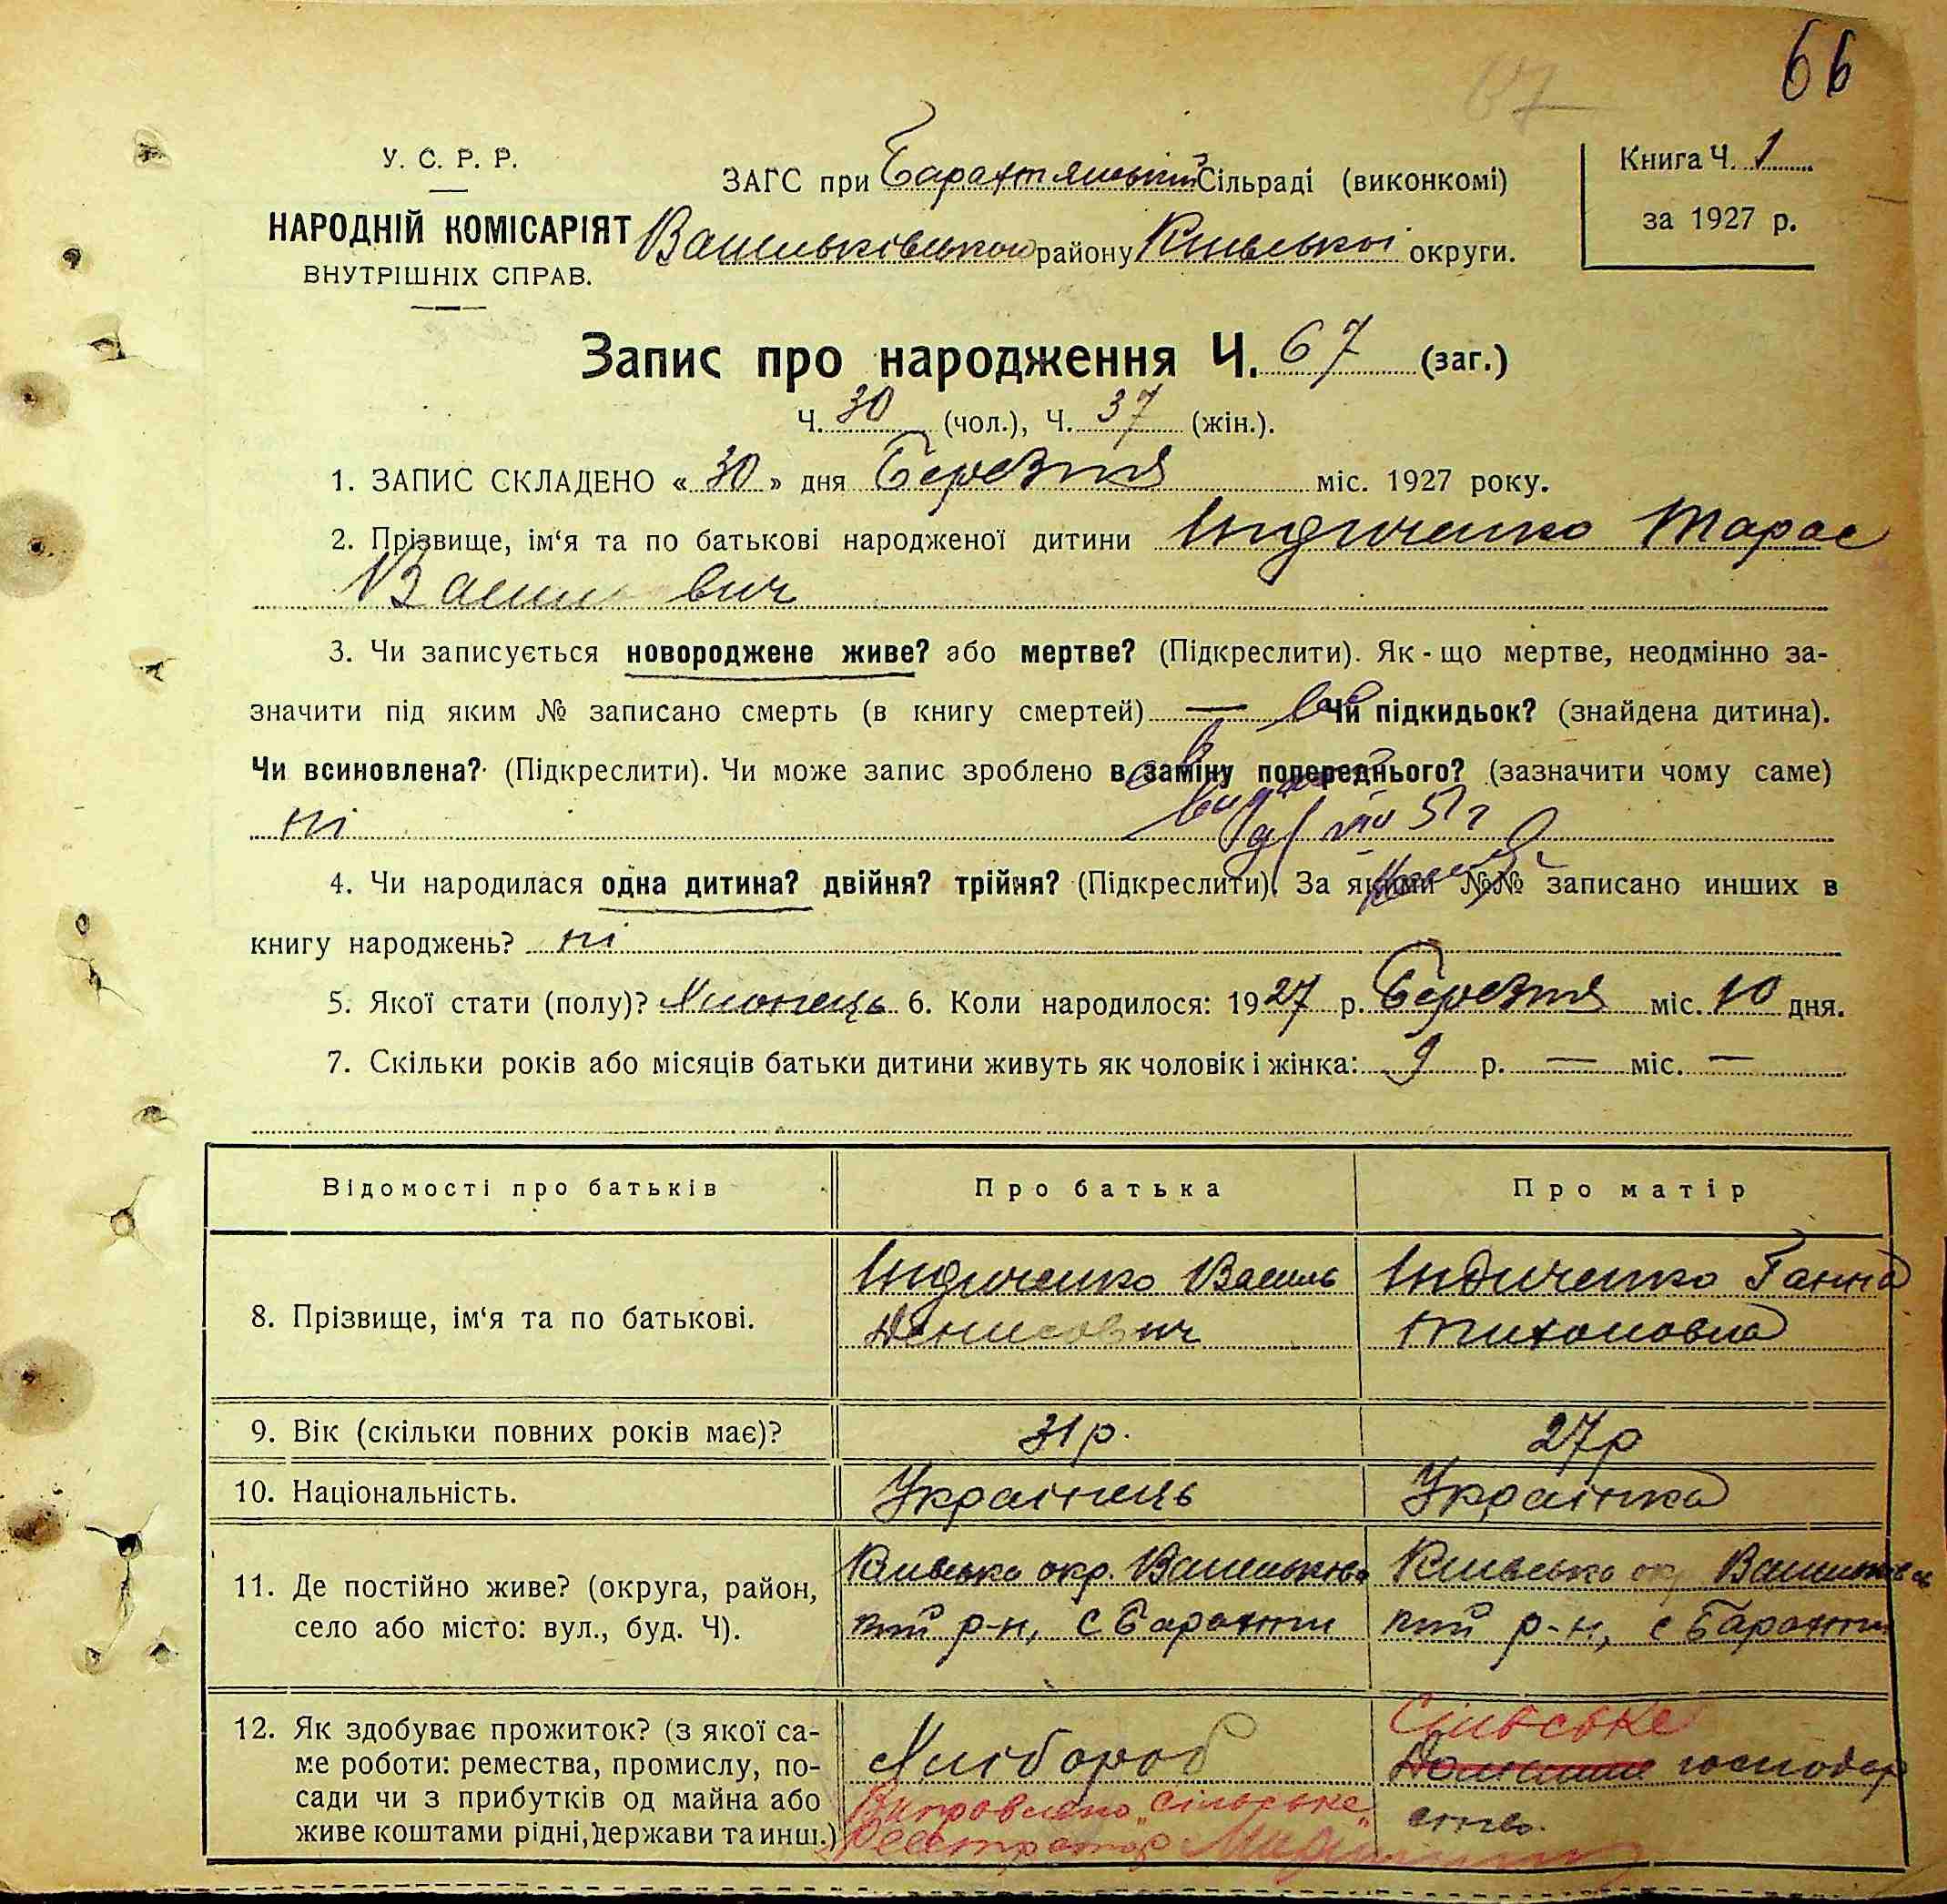 66
67
У. С. Р. Р.
НАРОДНІЙ КОМІСАРІЯТ
ВНУТРІШНІХ СПРАВ.
ЗАГС при Барахтянській Сільраді (виконкомі)
Васильківського району Київської округи.
Книга Ч. 1
за 1927 р.
Запис про народження Ч. 67 (заг.)
Ч. 30 (чол.), Ч. 37 (жін.).
1. ЗАПИС СКЛАДЕНО « 30 » дня Березня міс. 1927 року.
2. Прізвище, ім‘я та по батькові народженої дитини Індиченко Тарас
Васильович
3. Чи записується новороджене живе? або мертве? (Підкреслити). Як-що мертве, неодмінно за-
значити під яким № записано смерть (в книгу смертей) — Чи підкидьок? (знайдена дитина).
Чи всиновлена? (Підкреслити). Чи може запис зроблено в заміну попереднього? (зазначити чому саме)
ні
4. Чи народилася одна дитина? двійня? трійня? (Підкреслити). За якими №№ записано инших в
книгу народжень? ні
5. Якої стати (полу)? Хлопець 6. Коли народилося: 1927 р. Березня міс. 10 дня.
7. Скільки років або місяців батьки дитини живуть як чоловік і жінка: 9 р. — міс. —
Відомості про батьків Про батька Про матір
8. Прізвище, ім‘я та по батькові.
Індиченко Василь
Денисович
Індиченко Ганна
Тихоновна
9. Вік (скільки повних років має)? 31 р. 27 р
10. Національність. Українець Українка
11. Де постійно живе? (округа, район,
село або місто: вул., буд. Ч).
Київська окр. Васильківс
кий р-н, с Барахти
Київська окр Васильківсь
кий р-н, с Барахти
12. Як здобуває прожиток? (з якої са-
ме роботи: ремества, промислу, по-
сади чи з прибутків од майна або
живе коштами рідні, держави та инш.)
Хлібороб
Виправлено „Сільське"
Реєстратор
Сільське
Домашнє господар
ство.